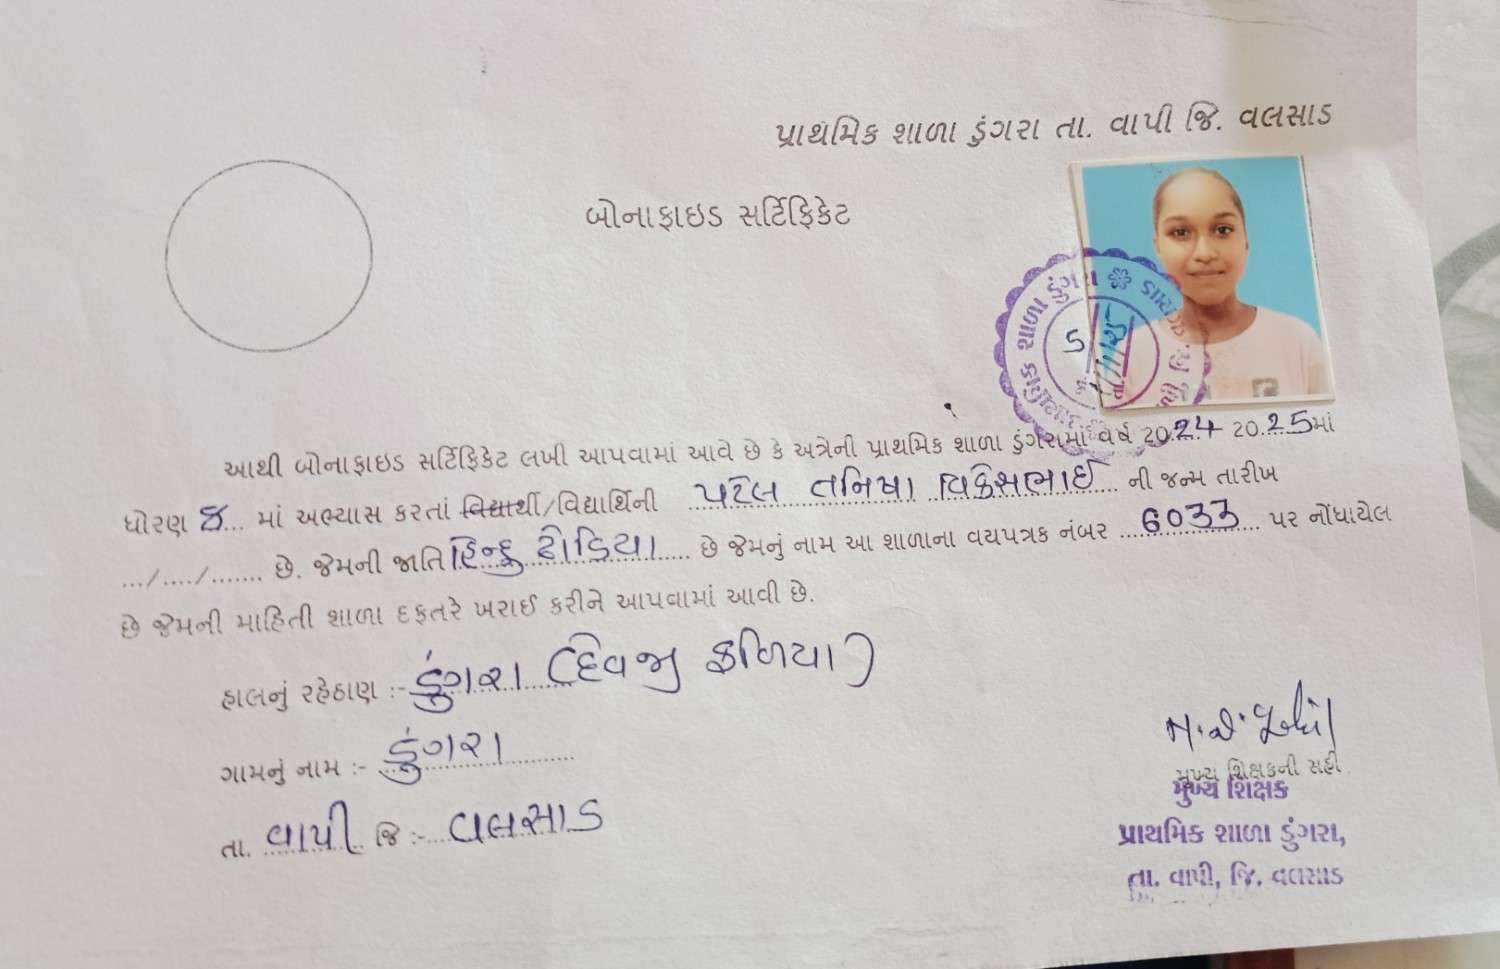 પ્રાથમિક શાળા ડુંગરા તા. વાપી જિ. વલસાડ
બોનાફાઇડ સર્ટિફિકેટ
પ્રાથમિક શાળા ડુંગરા
આથી બોનાફાઇડ સર્ટિફિકેટ લખી આપવામાં આવે છે કે અત્રેની પ્રાથમિક શાળા ડુંગરામાં વર્ષ 2024 2025માં
ધોરણ 8 માં અભ્યાસ કરતાં વિદ્યાર્થી/વિદ્યાર્થિની પટેલ તનિષા વિકેસભાઈ ની જન્મ તારીખ
.../..../....... છે. જેમની જાતિ હિન્દુ ઢોડિયા છે જેમનું નામ આ શાળાના વયપત્રક નંબર 6033 પર નોંધાયેલ
છે જેમની માહિતી શાળા દફતરે ખરાઈ કરીને આપવામાં આવી છે.
હાલનું રહેઠાણ :- ડુંગરા (દેવજી ફળિયા)
ગામનું નામ :- ડુંગરા
તા. વાપી જિ :- વલસાડ
મુખ્ય શિક્ષકની સહી
મુખ્ય શિક્ષક
પ્રાથમિક શાળા ડુંગરા,
તા. વાપી, જિ. વલસાડ